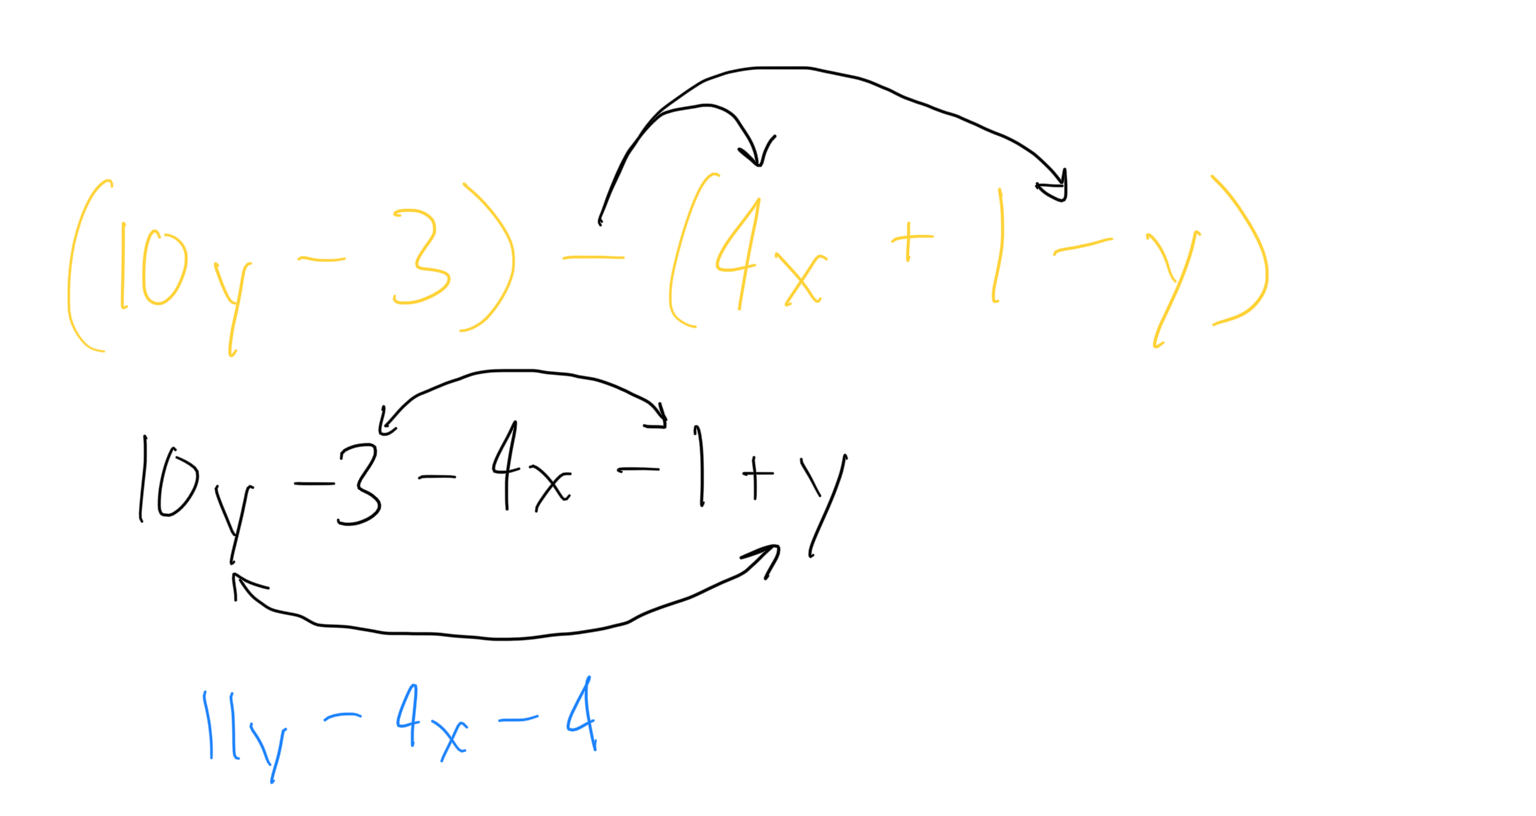 (10y - 3) - (4x + 1 - y)
10y - 3 - 4x - 1 + y
11y - 4x - 4